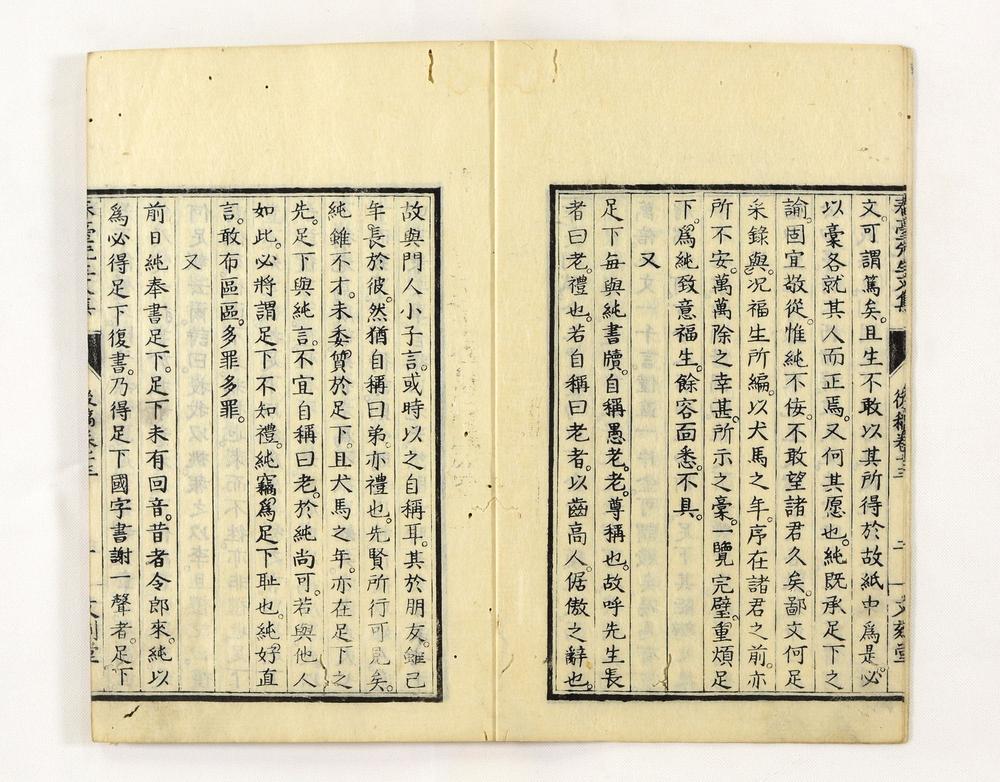 春臺先生文集 後稿卷十三 十一 文刻堂
文。可謂篤矣。且生不敢以其所得於故紙中爲是。必
以稾各就其人而正焉。又何其愿也。純既承足下之
諭。固宜敬從。惟純不佞。不敢望諸君久矣。鄙文何足
采錄與。况福生所編。以犬馬之年。序在諸君之前。亦
所不安。萬萬除之幸甚。所示之稾。一覽完璧。重煩足
下。爲純致意福生。餘容面悉。不具。
又
足下每與純書牘。自稱愚老。老。尊稱也。故呼先生長
者曰老。禮也。若自稱曰老者。以齒高人。倨傲之辭也。
故與門人小子言。或時以之自稱耳。其於朋友。雖己
年長於彼。然猶自稱曰弟。亦禮也。先賢所行可見矣。
純雖不才。未委質於足下。且犬馬之年。亦在足下之
先。足下與純言。不宜自稱曰老。於純尚可。若與他人
如此。必將謂足下不知禮。純竊爲足下恥也。純好直
言。敢布區區。多罪多罪。
又
前日純奉書足下。足下未有回音。昔者令郎來。純以
爲必得足下復書。乃得足下國字書謝一聲者。足下
春臺先生文集 後稿卷十三 十 文刻堂